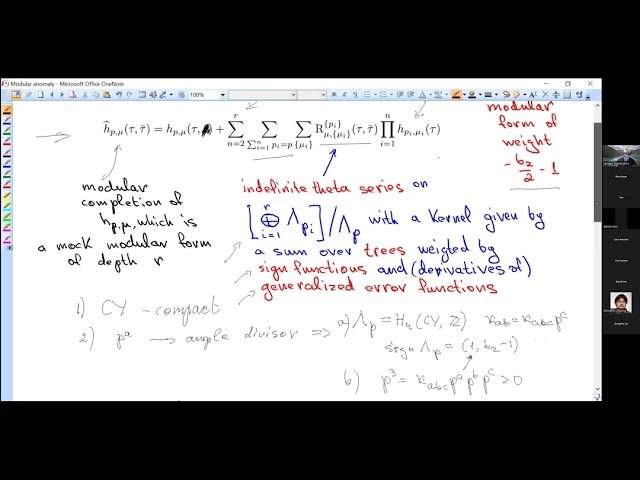 Modular anomaly - Microsoft Office OneNote
100%
ĥ_{p,μ}(τ, τ̄) = h_{p,μ}(τ, ) + ∑_{n=2}^{r} ∑_{∑_{i=1}^{n} p_i=p} ∑_{{μ_i}} R^{{p_i}}_{μ,{μ_i}}(τ, τ̄) ∏_{i=1}^{n} h_{p_i,μ_i}(τ)
modular
form of
weight
-b₂/2 - 1
modular
completion of
h_{p,μ}, which is
a mock modular form
of depth r
indefinite theta series on
[⊕_{i=1}^{r} Λ_{p_i}]/Λ_p with a kernel given by
a sum over trees weigted by
sign functions and (derivatives of)
generalized error functions
1) CY - compact
2) p^a → ample divisor ⇒ a) Λ_p = H_4(CY, ℤ) κ_{ab} = κ_{abc}p^c
sign Λ_p = (1, b₂-1)
b) p³ = κ_{abc}p^a p^b p^c > 0